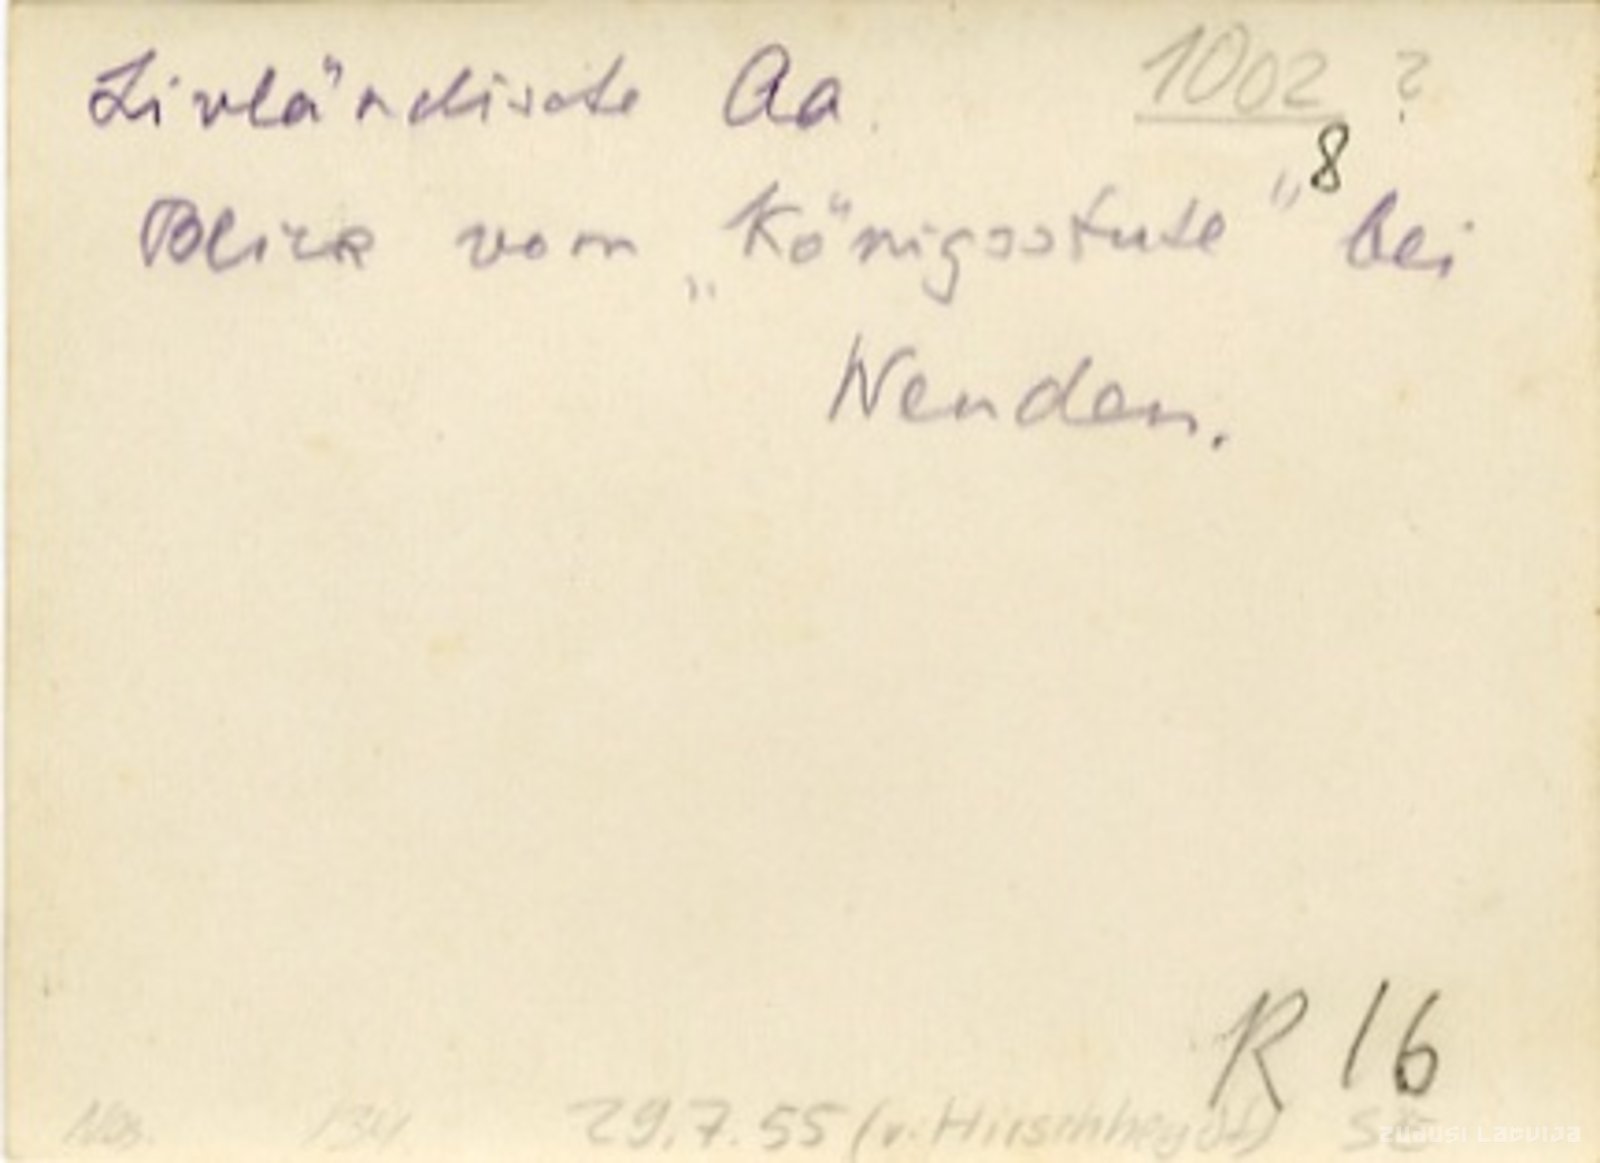 Livländische Aa. 1002 ?
8
Blick vom „Königsstule" bei
Wenden.
R 16
134. 29.7.55 (v. Hirschheydt)
Zudusi Latvija